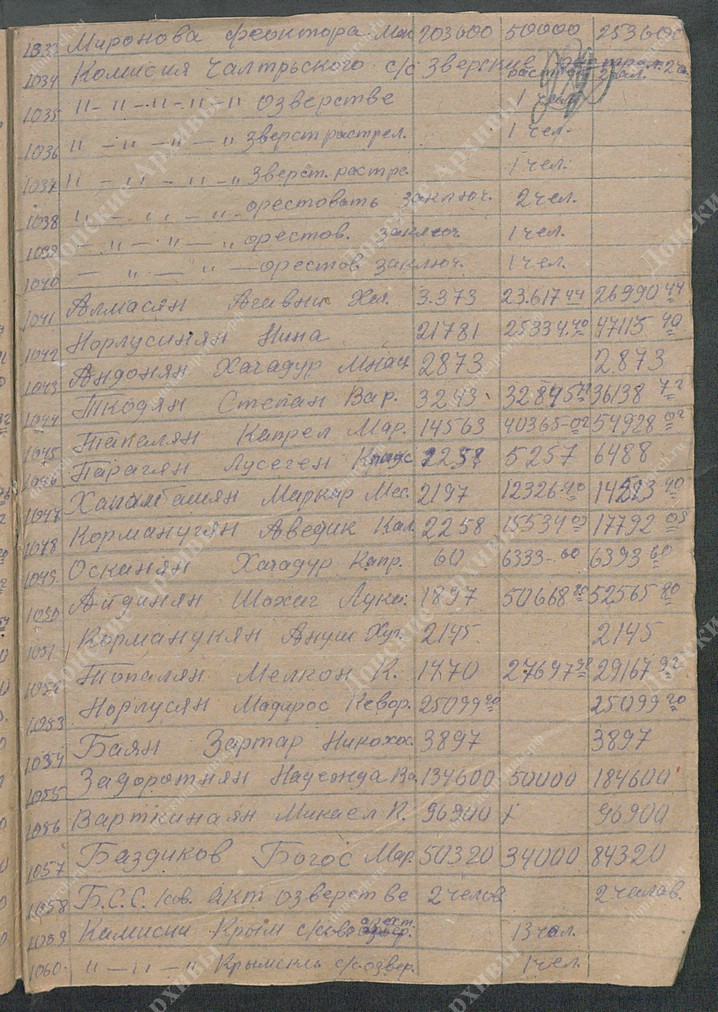 1033 Миронова Феоктора 203600 50000 253600
1034 Комисия Чалтрьского с/с зверские растрел
1035 "-"-"-"-" озверстве 1 чел.
1036 "-"-"-" зверст растрел. 1 чел.
1037 "-"-"-" зверст. растре. 1 чел.
1038 "-"-"-" орестовать заключ. 2 чел.
1039 -"-"-" орестов. заключ. 1 чел.
1040 -"-"- орестов заключ. 1 чел.
1041 Алмасян Агавни Хач. 3.373 23.617 44 26990 44
1042 Норлусинян Нина 21781 25334.40 47115 40
1043 Андонян Хачадур Мнац 2873 2.873
1044 Ткодян Степан Вар. 3243 32895 72 36138 72
1045 Топалян Капрел Мар. 14563 40365-02 54928 02
1046 Парагян Лусеген 5257 6488
1047 Хапалбашян Маркар Мес. 2197 12326.40 14523 40
1048 Корманугян Аведик Кал. 2258 15534 02 17792 02
1049 Осканян Хачадур Капр. 60 6333-60 6393 60
1050 Айдинян Шохаг Лука. 1897 50668 80 52565 80
1051 Корманукян Ануш Худ. 2145 2145
1052 Топалян Мелкон К. 1470 27697 92 29167 92
1053 Норлусян Мадирос Кевор. 25099 20 25099 20
1054 Баян Зартар Никохос. 3897 3897
1055 Задоротнян Надежда Ва. 134600 50000 184600
1056 Варткинаян Микаел К. 96900 96900
1057 Баздиков Богос Мар. 50320 34000 84320
1058 Б.С.С. /сов. акт озверстве 2 челов 2 челов.
1059 Камисии Крым с/сово 13 чал.
1060 "-"-" Крымский с/с озвер. 1 чел.